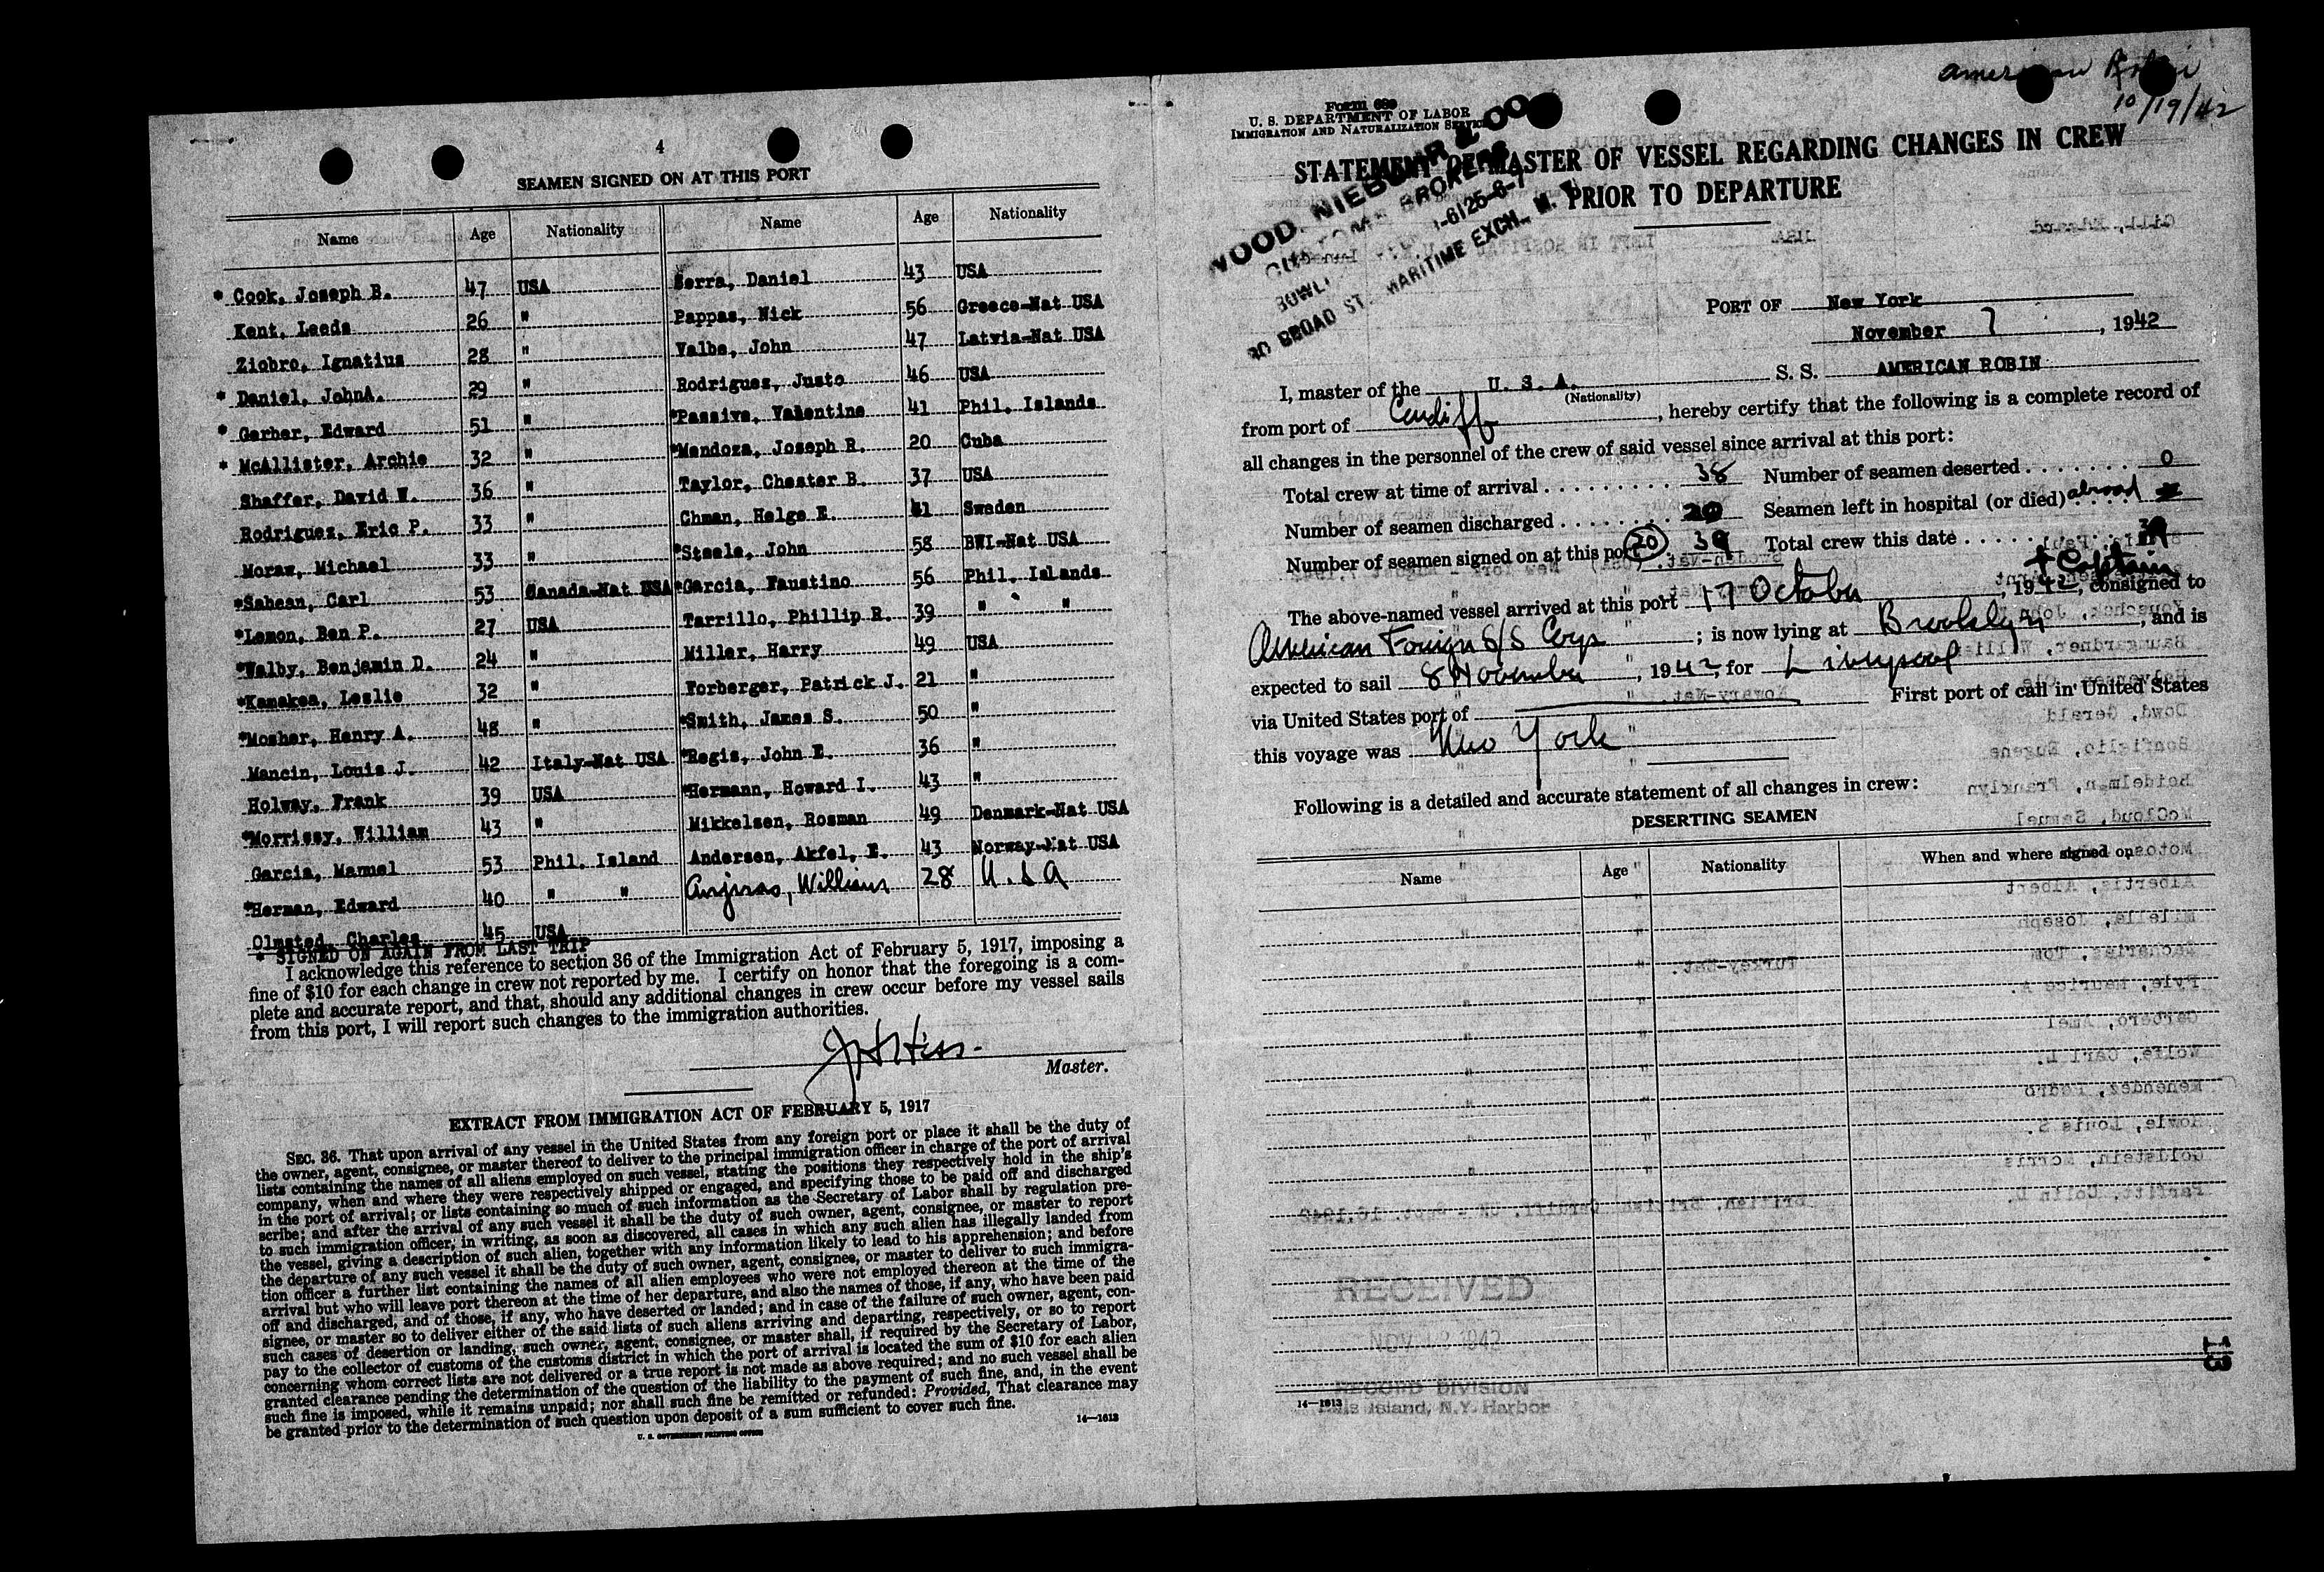 4
SEAMEN SIGNED ON AT THIS PORT
Name Age Nationality Name Age Nationality
* Cook, Joseph B. 47 USA Serra, Daniel 43 USA
Kent, Leeds 26 " Pappas, Nick 56 Greece-Nat USA
Ziobro, Ignatius 28 " Valbe, John 47 Latvia-Nat USA
* Daniel, JohnA. 29 " Rodrigues, Justo 46 USA
* Gerber, Edward 51 " *Passiva, Valentine 41 Phil. Islands
* McAllister, Archie 32 " *Mendoza, Joseph R. 20 Cuba
Shaffer, David W. 36 " Taylor, Chester B. 37 USA
Rodriguez, Eric P. 33 " Ghman, Helge E. 41 Sweden
Moraw, Michael 33 " *Steele, John 58 BWI-Nat USA
*Sahean, Carl 53 Canada-Nat USA *Garcia, Faustino 56 Phil. Islands
*Lemon, Ben P. 27 USA Tarrillo, Phillip R. 39 " "
*Walby, Benjamin D. 24 " Miller, Harry 49 USA
*Kamakea, Leslie 32 " Forberger, Patrick J. 21 "
*Mosher, Henry A. 48 " *Smith, James S. 50 "
Mancin, Louis J. 42 Italy-Nat USA *Regis, John E. 36 "
Holway, Frank 39 USA *Hermann, Howard I. 43 "
*Morrissy, William 43 " Mikkelsen, Rosman 49 Denmark-Nat USA
Garcia, Manuel 53 Phil. Island Andersen, Akfel, E. 43 Norway-Nat USA
*Herman, Edward 40 " " William 28 U.S.A
Olmsted, Charles 45 USA
* SIGNED ON AGAIN FROM LAST TRIP
I acknowledge this reference to section 36 of the Immigration Act of February 5, 1917, imposing a
fine of $10 for each change in crew not reported by me. I certify on honor that the foregoing is a com-
plete and accurate report, and that, should any additional changes in crew occur before my vessel sails
from this port, I will report such changes to the immigration authorities.
Master.
EXTRACT FROM IMMIGRATION ACT OF FEBRUARY 5, 1917
SEC. 36. That upon arrival of any vessel in the United States from any foreign port or place it shall be the duty of
the owner, agent, consignee, or master thereof to deliver to the principal immigration officer in charge of the port of arrival
lists containing the names of all aliens employed on such vessel, stating the positions they respectively hold in the ship's
company, when and where they were respectively shipped or engaged, and specifying those to be paid off and discharged
in the port of arrival; or lists containing so much of such information as the Secretary of Labor shall by regulation pre-
scribe; and after the arrival of any such vessel it shall be the duty of such owner, agent, consignee, or master to report
to such immigration officer, in writing, as soon as discovered, all cases in which any such alien has illegally landed from
the vessel, giving a description of such alien, together with any information likely to lead to his apprehension; and before
the departure of any such vessel it shall be the duty of such owner, agent, consignee, or master to deliver to such immigra-
tion officer a further list containing the names of all alien employees who were not employed thereon at the time of the
arrival but who will leave port thereon at the time of her departure, and also the names of those, if any, who have been paid
off and discharged, and of those, if any, who have deserted or landed; and in case of the failure of such owner, agent, con-
signee, or master so to deliver either of the said lists of such aliens arriving and departing, respectively, or so to report
such cases of desertion or landing, such owner, agent, consignee, or master shall, if required by the Secretary of Labor,
pay to the collector of customs of the customs district in which the port of arrival is located the sum of $10 for each alien
concerning whom correct lists are not delivered or a true report is not made as above required; and no such vessel shall be
granted clearance pending the determination of the question of the liability to the payment of such fine, and, in the event
such fine is imposed, while it remains unpaid; nor shall such fine be remitted or refunded: Provided, That clearance may
be granted prior to the determination of such question upon deposit of a sum sufficient to cover such fine.
U. S. GOVERNMENT PRINTING OFFICE
14—1613
American Robin
10/19/42
Form 689
U. S. DEPARTMENT OF LABOR
IMMIGRATION AND NATURALIZATION SERVICE
STATEMENT OF MASTER OF VESSEL REGARDING CHANGES IN CREW
PRIOR TO DEPARTURE
WOOD, NIEBUHR & CO
CUSTOMS BROKERS
-6125-6-7
30 BROAD ST. MARITIME EXCH., N. Y.
PORT OF New York
November 7, 1942
I, master of the U. S. A. S. S. AMERICAN ROBIN
(Nationality)
from port of Cardiff, hereby certify that the following is a complete record of
all changes in the personnel of the crew of said vessel since arrival at this port:
Total crew at time of arrival 38 Number of seamen deserted 0
Number of seamen discharged 20 Seamen left in hospital (or died) abroad
Number of seamen signed on at this port 20 39 Total crew this date 39
+ Captain
The above-named vessel arrived at this port 17 October, 1942, consigned to
American Foreign S/S Corp; is now lying at Brooklyn, and is
expected to sail 8 November, 1942, for Liverpool
via United States port of First port of call in United States
this voyage was New York
Following is a detailed and accurate statement of all changes in crew:
DESERTING SEAMEN
Name Age Nationality When and where signed on
RECEIVED
NOV 1942
RECORD DIVISION
Ellis Island, N.Y. Harbor
14—1613
13